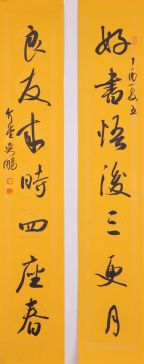 好書悟後三更月
丁酉夏五
良友來時四座春